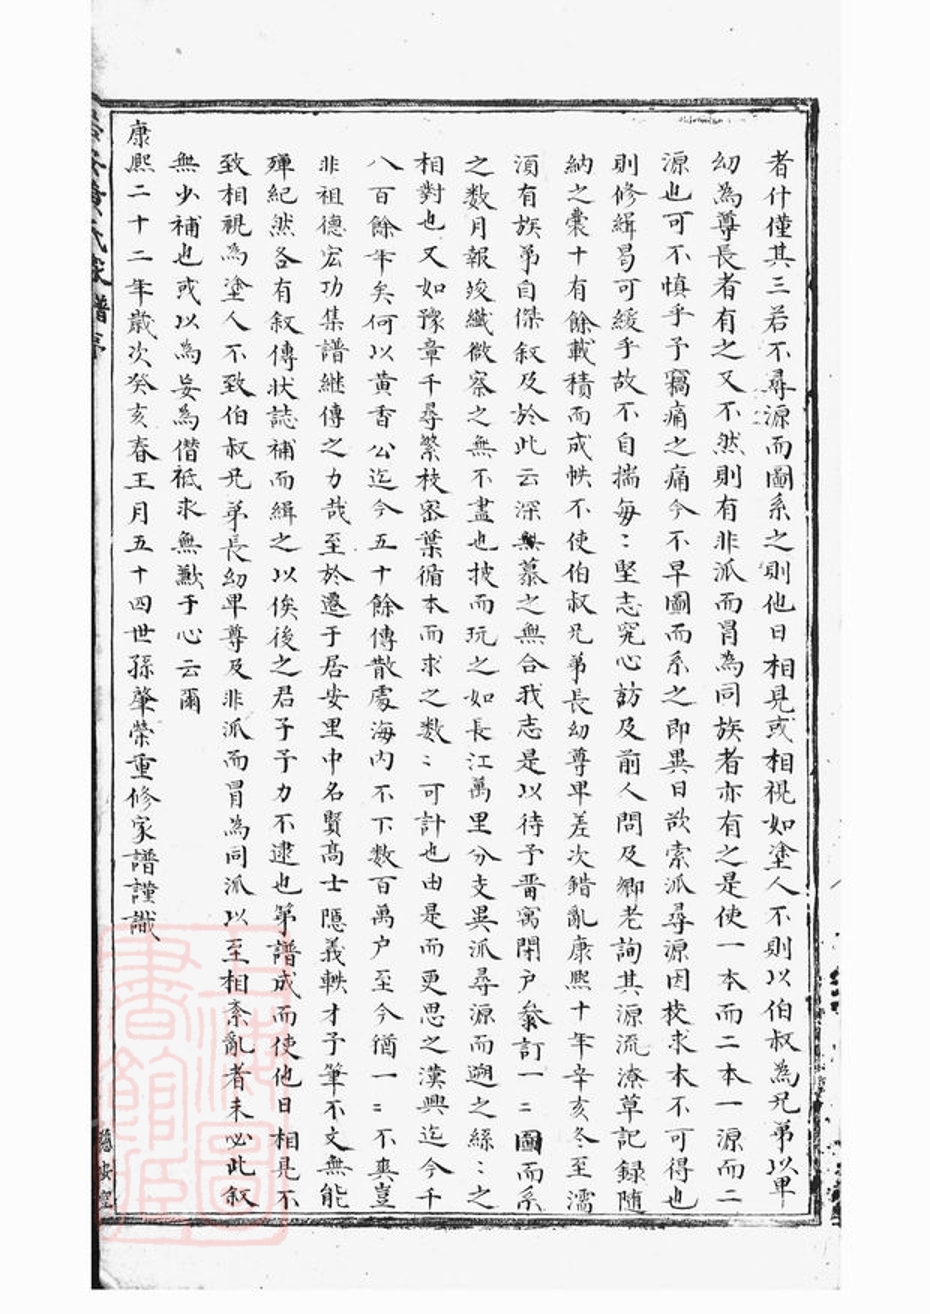 者什僅其三若不尋源而圖系之則他日相見或相視如塗人不則以伯叔為兄弟以卑
幼為尊長者有之又不然則有非派而冒為同族者亦有之是使一本而二本一源而二
源也可不慎乎予竊痛之痛今不早圖而系之即異日欲索派尋源因枝求本不可得也
則修緝曷可緩乎故不自揣每〻堅志究心訪及前人問及鄉老詢其源流潦草記録隨
納之囊十有餘載積而成帙不使伯叔兄弟長幼尊卑差次錯亂康熙十年辛亥冬至濡
湏有族弟自傑叙及於此云深無慕之無合我志是以待予晋寓閉户叅訂一〻圖而系
之数月報竣纖微察之無不盡也披而玩之如長江萬里分支異派尋源而遡之絲〻之
相對也又如豫章千尋繁枝密葉循本而求之数〻可計也由是而更思之漢興迄今千
八百餘年矣何以黄香公迄今五十餘傳散處海内不下数百萬户至今猶一〻不爽豈
非祖德宏功集譜継傳之力哉至於遷于居安里中名賢高士隱義軼才予筆不文無能
殫紀然各有叙傳状誌補而緝之以俟後之君子予力不逮也第譜成而使他日相見不
致相視為塗人不致伯叔兄弟長幼卑尊及非派而冒為同派以至相紊亂者未必此叙
無少補也或以為妄為僭祗求無歉于心云爾
康熙二十二年歲次癸亥春王月五十四世孫肇榮重修家譜謹識
黄氏家譜
上海圖書館